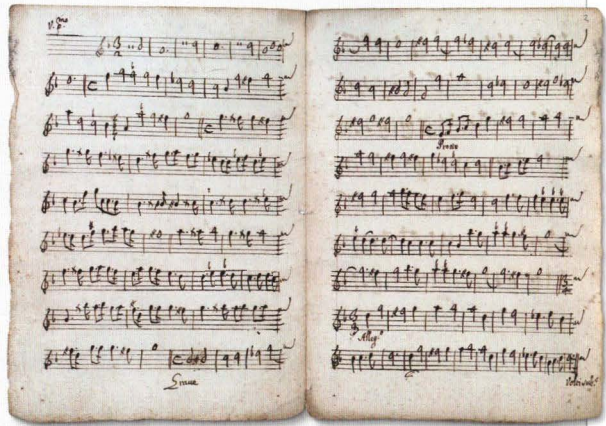 V. P.mo
Graue
Presto
Alleg.o
Volti sub.o